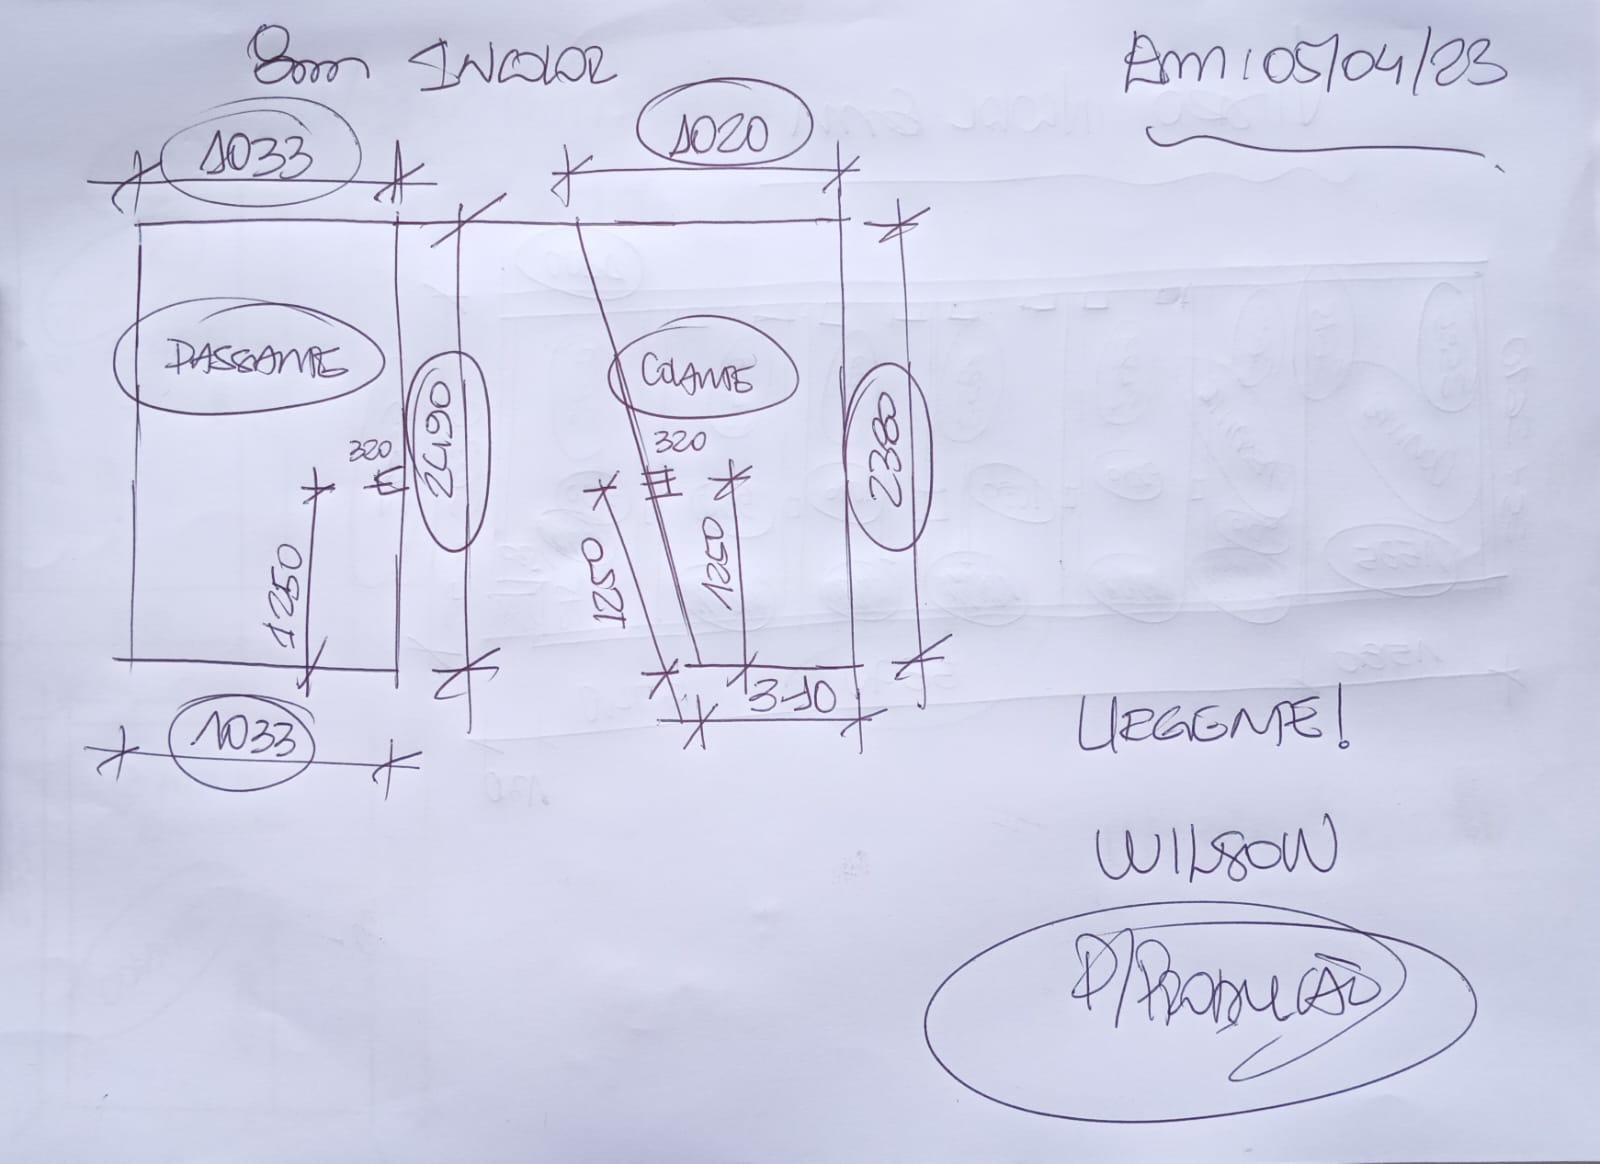 8mm INCOLOR
Em: 05/04/23
1033
1020
PASSANTE
COLANTE
2490
2380
320
320
1250
1250
1250
310
1033
URGENTE!
WILSON
P/PRODUÇÃO